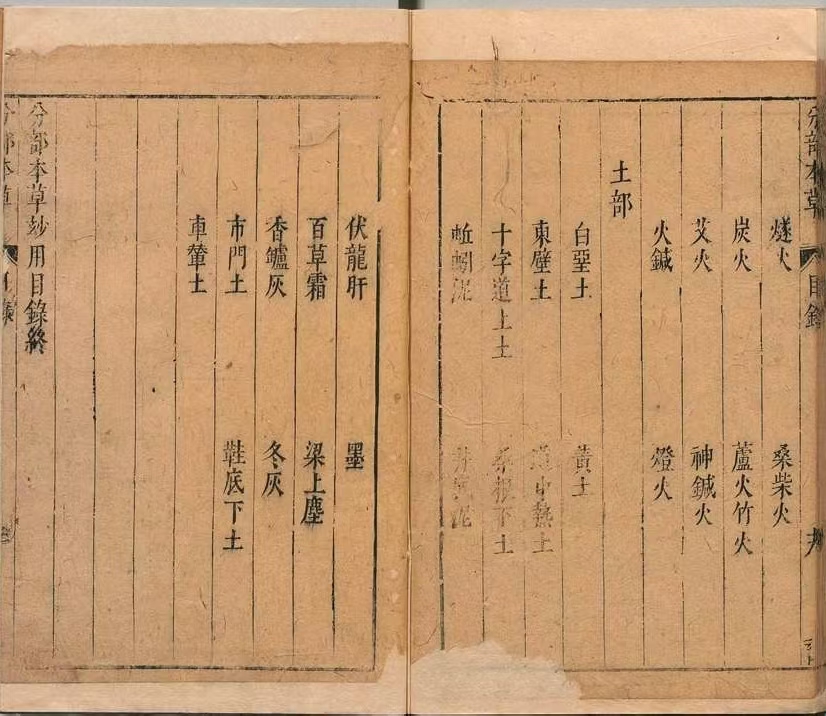 分部本草 目錄
燧火 桑柴火
炭火 蘆火竹火
艾火 神鍼火
火鍼 燈火
土部
白堊土 黃土
東壁土 道中熱土
十字道上土 桑根下土
蚯蚓泥 井底泥
伏龍肝 墨
百草霜 梁上塵
香鑪灰 冬灰
市門土 鞋底下土
車輦土
分部本草玅用目錄終
分部本草 目錄